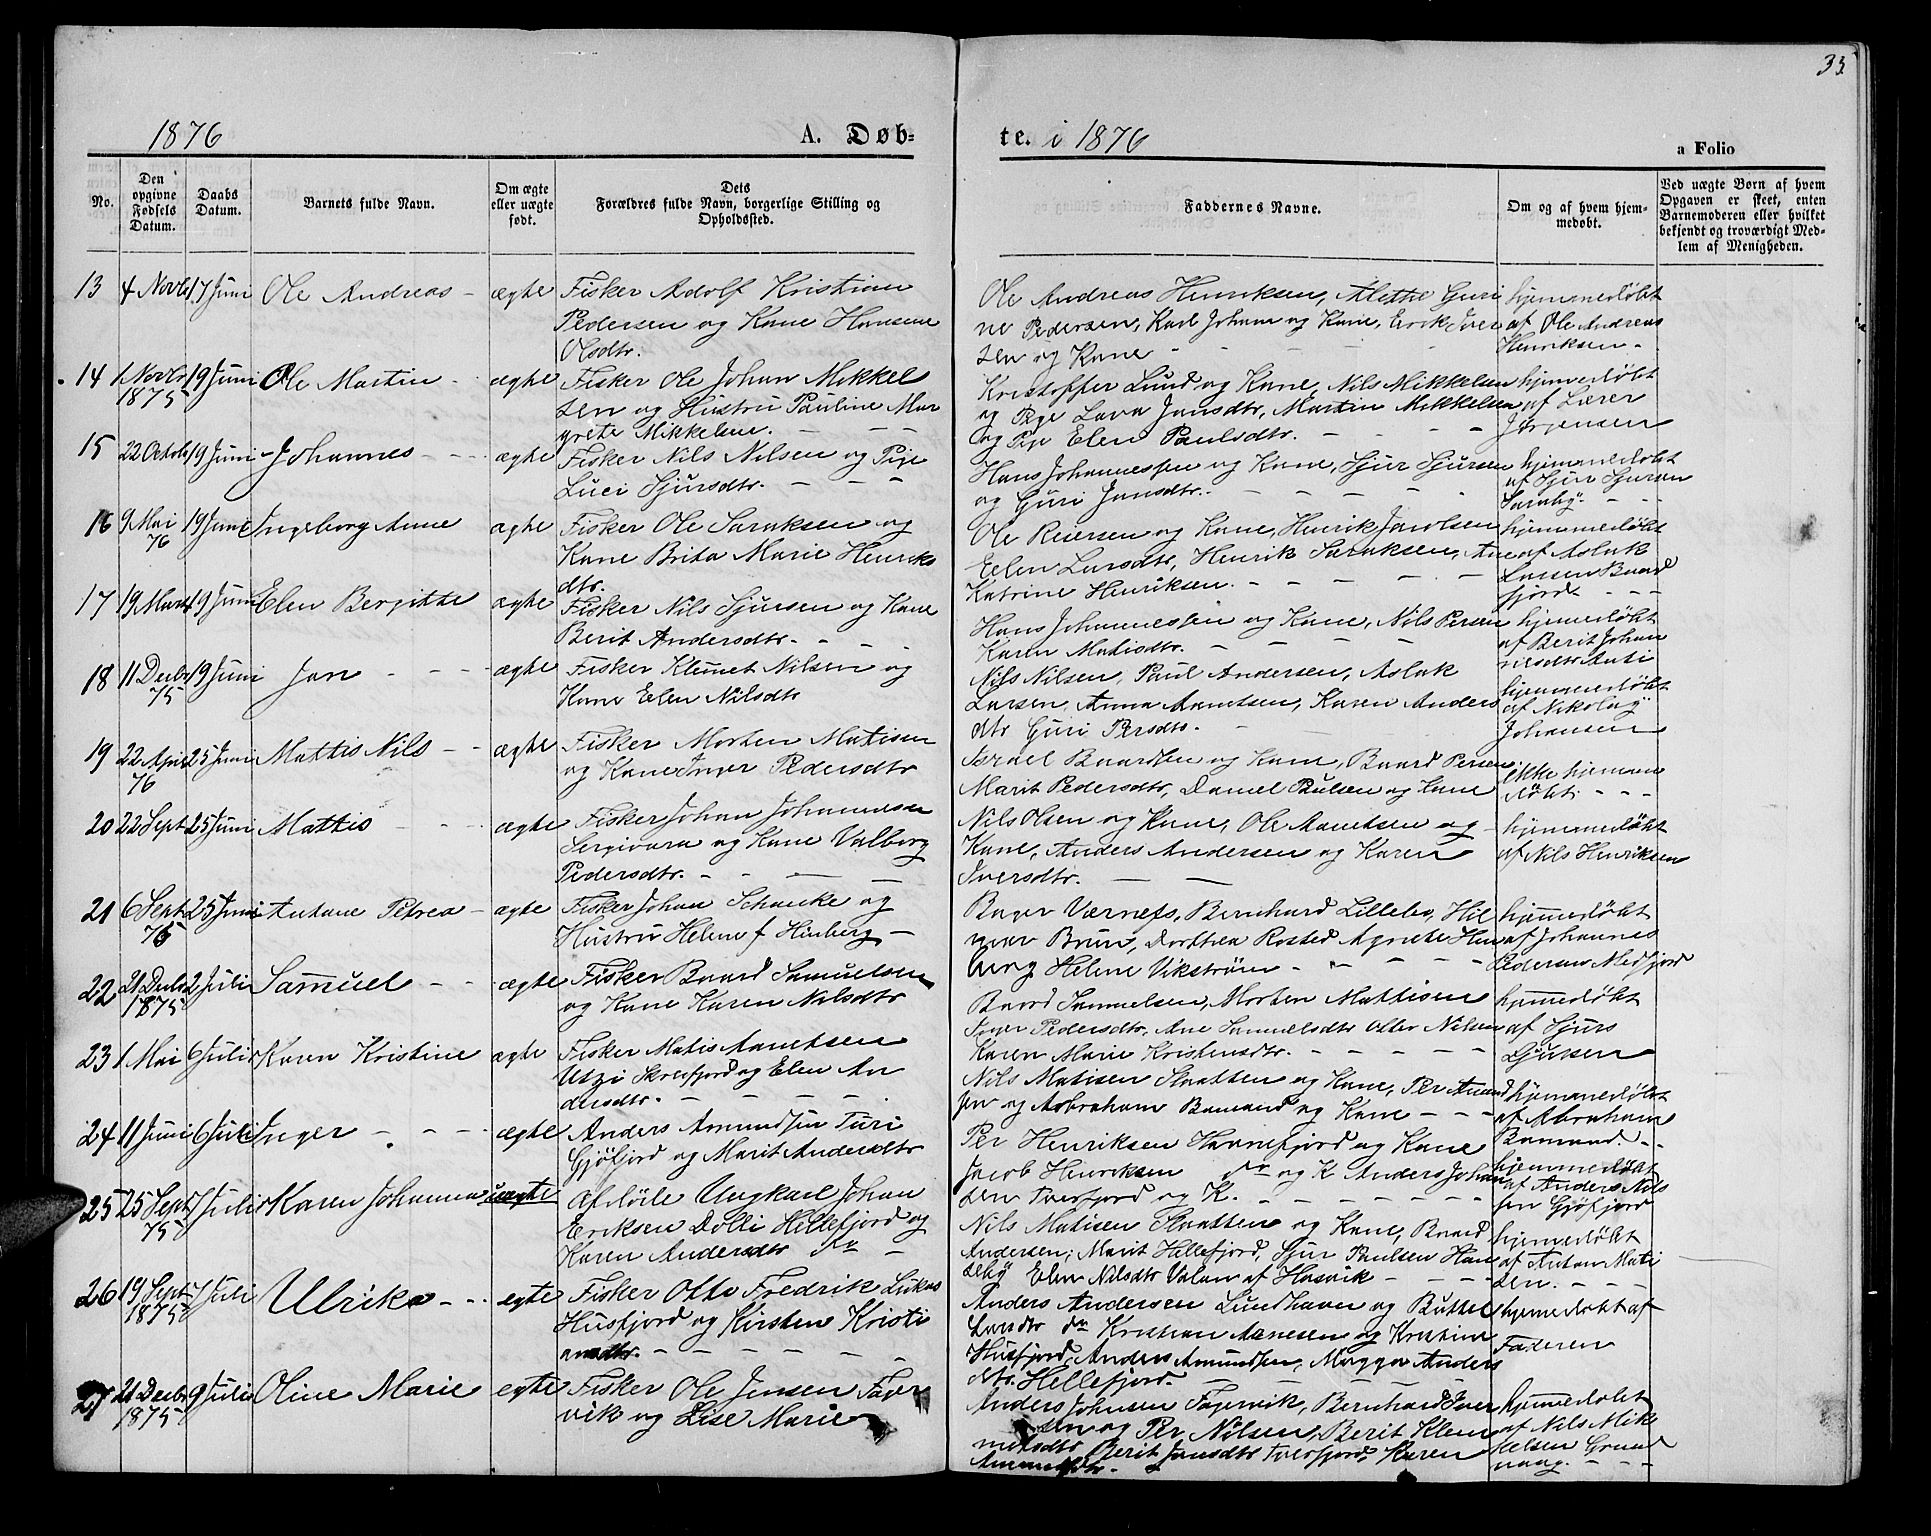 35
1876
A. Døb-
te. i 1876
a Folio
No.
Den opgivne Fødsels Datum.
Daabs Datum.
Barnets fulde Navn.
Om ægte eller uægte født.
Dets Forældres fulde Navn, borgerlige Stilling og Opholdssted.
Faddernes Navne.
Om og af hvem hjemmedøbt.
Ved uægte Børn af hvem Opgaven er skeet, enten Barnemoderen eller hvilket bekjendt og troværdigt Medlem af Menigheden.
13 4 Novb 17 Juni Ole Andreas - ægte
Fisker Adolf Kristian
Pedersen og Kone Hansine
Olsdtr.
Ole Andreas Henriksen, Alethe Guri
ne Pedersen, Karl Johan og Kone, Erik Iver
sen og Kone
hjemmedøbt
af Ole Andreas
Henriksen
14 1 Novbr 1875 19 Juni Ole Martin - ægte
Fisker Ole Johan Mikkel
sen og Hustru Pauline Mar
grete Mikkelsen.
Kristoffer Lund og Kone, Nils Mikkelsen
og Pige Lava Jansdtr, Martin Mikkelsen
og Pige Elen Paulsdtr.
hjemmedøbt
af Lærer
Jørgensen
15 22 Octob 19 Juni Johannes - ægte
Fisker Nils Nilsen og Pige
Luci Sjursdtr.
Hans Johannessen og Kone, Sjur Sjursen
og Guri Jansdtr.
hjemmedøbt
af Sjur Sjursen
Saraby
16 9 Mai 76 19 Juni Ingeborg Anne ægte
Fisker Ole Saraksen og
Kone Brita Marie Henriks
dtr.
Ole Reiersen og Kone, Henrik Jacobsen
Eelen Larsdtr, Henrik Saraksen, An
Katrine Henriksen
hjemmedøbt
af Aslak
Larsen Baard
fjord
17 19 Mars 19 Juni Elen Bergitte ægte
Fisker Nils Sjursen og Kone
Berit Andersdtr.
Hans Johannessen og Kone, Nils Persen
Karen Matisdtr.
hjemmedøbt
af Berit Johan
nesdtr Anti
18 11 Decbr 75 19 Juni Jon - ægte
Fisker Klemet Nilsen og
Kone Elen Nilsdtr
Nils Nilsen, Paul Andersen, Aslak
Larsen, Anna Amundsen, Karen Anders
dtr Guri Persdtr.
hjemmedøbt
af Nikolay
Johansen
19 22 April 76 25 Juni Mattis Nils - ægte
Fisker Morten Matisen
og Kone Inger Pedersdtr
Israel Baardsen og Kone, Baard Persen
Marit Pedersdtr, Daniel Paulsen og Kone
ikke hjemme
døbt
20 22 Sept 25 Juni Mattis - ægte
Fisker Johan Johannesen
Sergivara og Kone Valborg
Pedersdtr.
Nils Olsen og Kone, Ole Amundsen og
Kone, Anders Andersen og Karen
Iversdtr.
hjemmedøbt
af Nils Henriksen
21 6 Sept 75 25 Juni Antone Petrea - ægte
Fisker Johan Schanke og
Hustru Helene f Hinberg
Bager Værness, Bernhard Lillebo, Hil
mar Brun, Dorthea Rosted Agnete Hin
berg Helene Vikstrøm
hjemmedøbt
af Johannes
Pedersen Medfjord
22 21 Decbr 1875 2 Juli Samuel - ægte
Fisker Baard Samuelsen
og Kone Karen Nilsdtr
Baard Samuelsen, Morten Mattisen
Inger Pedersdtr, Ane Samuelsdtr Oller Nilsen
Karen Marie Kristensdtr.
hjemmedøbt
af Sjurs
Sjursen
23 1 Mai 6 Juli Karen Kristine ægte
Fisker Matis Amundsen
Utzi Skreifjord og Elen An
dersdtr.
Nils Matisen Skaatten og Kone, Per Amund
sen og Abraham Bomand og Kone
hjemmedøbt
af Abraham
Bomand.
24 11 Juni 6 Juli Inger - ægte
Anders Amundsen Turi
Gjøfjord og Marit Andersdtr
Per Henriksen Havnefjord og Kone
Jacob Henriksen do og K Anders Johan
sen Tverfjord og K.
hjemmedøbt
af Anders Nils
sen Gjøfjord
25 25 Sept 75 7 Juli Karen Johanna uægte
Afdøde Ungkarl Johan
Eriksen Dolli Hellefjord og
Karen Andersdtr do
Nils Matisen Skaatten og Kone, Baard
Andersen, Marit Hellefjord, Sjur Paulsen Han
seby Elen Nilsdtr Valan af Hasvik
hjemmedøbt
af Anton Mati
sen.
26 19 Sept 1875 7 Juli Ulrika - egte
Fisker Otto Fredrik Lukas
Husfjord og Kirsten Kristi
ansdtr.
Anders Andersen Lundhavn og Buttel
Larsdtr do Kristian Arnesen og Kristine
Husfjord, Anders Amundsen, Margga Anders
dtr. Hellefjord.
hjemmedøbt af
Faderen
27 21 Decbr 1875 9 Juli Oline Marie egte
Fisker Ole Jensen Fager
vik og Lise Marie
Anders Johnsen Fagervik, Bernhard Iver
sen og Per Nilsen, Berit Klem
metsdtr Berit Jonsdtr Tverfjord, Karen
hjemmedøbt
af Nils Mik
kelsen Grund
vaag.